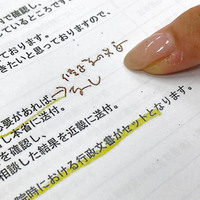 で確認し、
しているところですが
ております。
きたいと思っておりますので、
要があれば
し本省に送付。
を確認し、
相談した結果を近畿に送付。
時における行政文書がセットとなります。